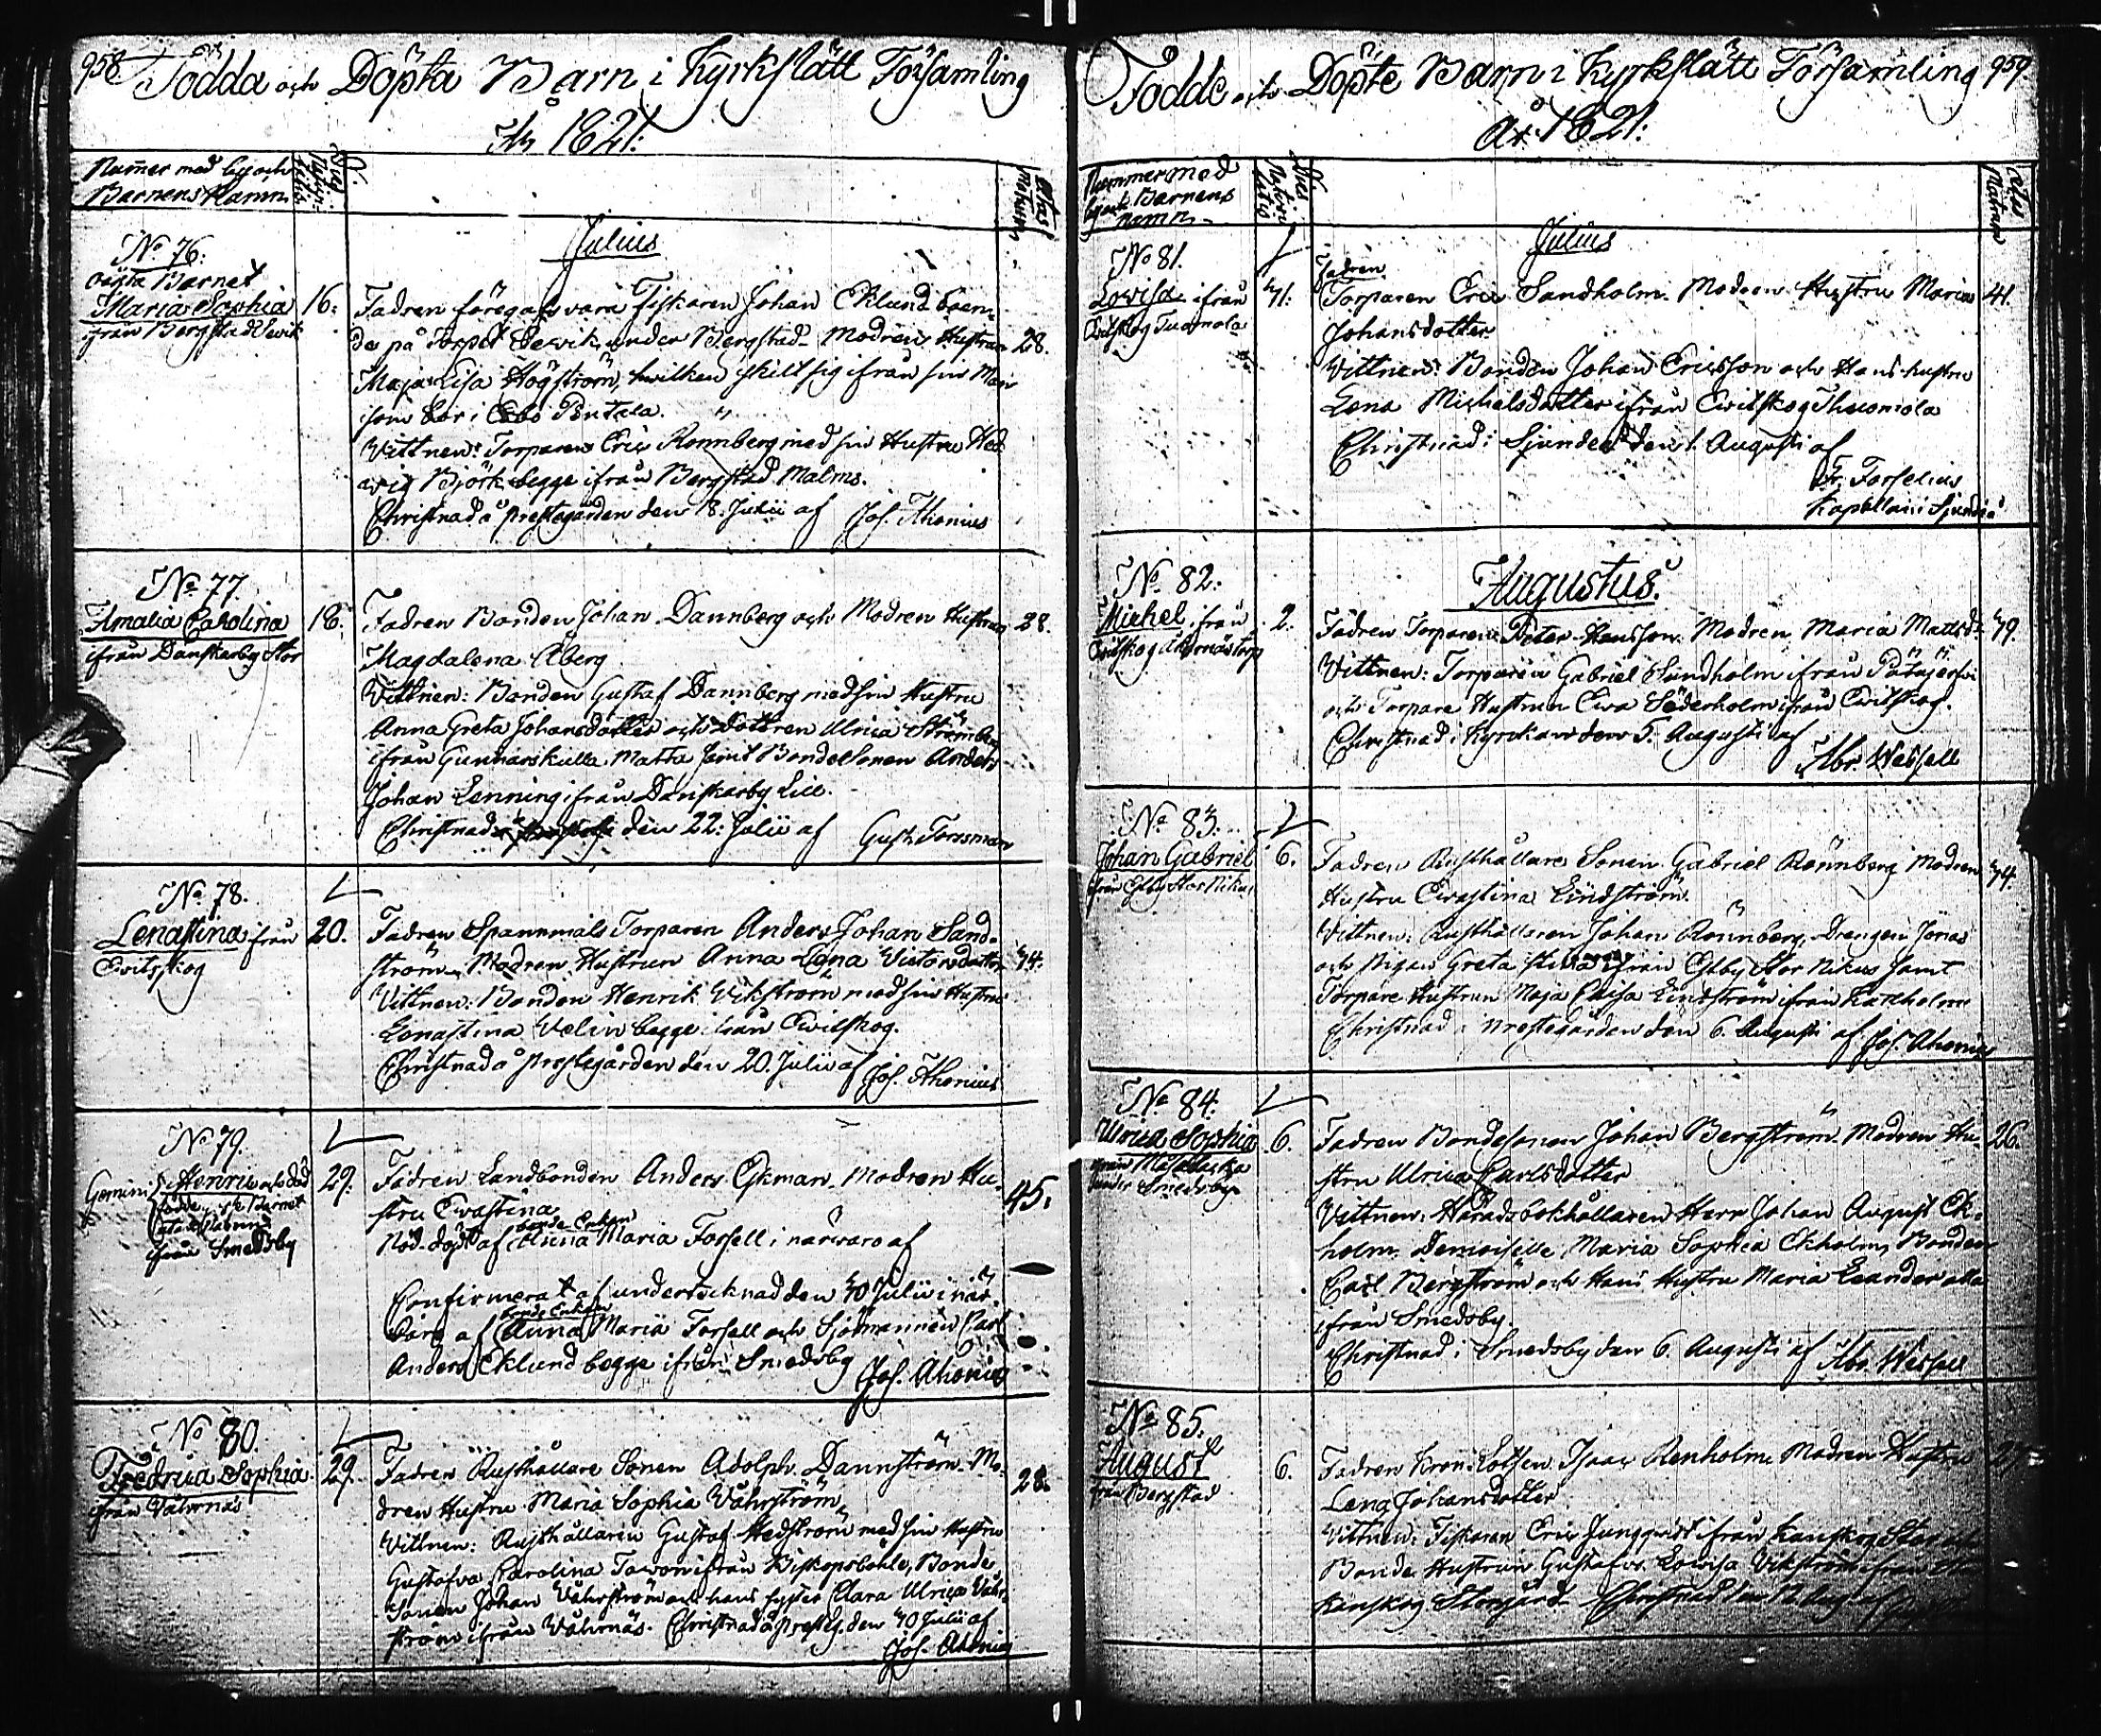 958
Födda och Döpta Barn i Kyrkslätt Församling
År 1821:
Namer med by och
Barnens Namn
Dies
Nativi-
tatis
Ætas
Matrum
Julius
No 76:
oägta Barnet
Maria Sophia
från Bergstad Sewik
16:
Fadren föregafs vara Fiskaren Johan Eklund boen-
de på Torpet Sewik under Bergstad. Modren Hustrun
28.
Maja Lisa Högström, hwilken skilt sig ifrån sin Man
som bor i Esbo Pentala.
Vittnen: Torparen Eric Rönnberg med sin Hustru Hed-
wig Björk begge ifrån Bergstad Malms.
Christnad å Prestegården den 18. Julii af Jos. Ahonius
No 77.
Amalia Carolina
ifrån Danskarby Stor
18.
Fadren Bonden Johan Dannberg och Modren Hustrun
28.
Magdalena Åberg
Vittnen: Bonden Gustaf Dannberg med sin Hustru
Anna Greta Johansdotter och Dottren Ulrica Strömberg
ifrån Gunnarskulla Matts samt Bondesonen Anders
Johan Lenning ifrån Danskarby Lill.
Christnad den 22: Julii af Gust. Forssman
No 78.
Lenastina från
Evitskog
20.
Fadren Spannmåls Torparen Anders Johan Sand-
ström, Modren Hustrun Anna Lena Victorsdotter
34.
Vittnen: Bonden Henrik Vikström med sin Hustru
Lenastina Velin begge ifrån Evitskog.
Christnad å Prestegården den 20. Julii af
Jos. Ahonius
No 79.
Gemini
Henric och död
född Barnet
utan Namn
ifrån Smedsby
29.
Fadren Landbonden Anders Ekman. Modren Hu-
45.
stru Evastina
Nöd-döpt af bonde Enkan Anna Maria Forsell i närvaro af
Confirmerat af undertecknad den 30 Julii i när-
varo af bonde Enkan Anna Maria Forsell och Sjömannen Carl
Anders Eklund begge ifrån Smedsby
Jos. Ahonius
No 80.
Fredrica Sophia
från Våhrnäs
29.
Fadren Rusthållare Sonen Adolph Dannström. Mo-
28.
dren Hustru Maria Sophia Våhrström,
Vittnen: Rusthållaren Gustaf Hedström med sin Hustru
Gustafva Carolina ifrån Biskopsböle, Bonde
Sonen Johan Våhrström och hans syster Clara Ulrica Våhr-
ström ifrån Våhrnäs. Christnad å Presteg. den 30 Julii af
Jos. Ahonius
959
Födde och Döpte Barn i Kyrkslätt Församling
År 1821:
Nummer med
by och Barnens
namn
Dies
Nativi-
tatis
Ætas
Matrum
Julius
No 81.
Lovisa ifrån
Evitskog Tuomola
31.
Fadren
Torparen Eric Sandholm. Modren Hustru Maria
41.
Johansdotter
Vittnen: Bonden Johan Ericsson och Hans hustru
Lena Michelsdotter ifrån Evitskog Thuomola
Christnad i Sjundeå den 1. Augusti af
Er. Forselius
Kapellan i Sjundeå
Augustus.
No 82:
Michel ifrån
2.
Fadren Torparen Peter Hansson. Modren Maria Mattsd.
39.
Vittnen: Torparen Gabriel Sundholm ifrån
och Torpare Hustrun Eva Söderholm ifrån Evitskog.
Christnad i Kyrckan den 5. Augusti af
Abr. Wessell
No 83.
Johan Gabriel
från Esby Stor Nikus
6.
Fadren Rusthållare Sonen Gabriel Rönnberg Modren
34.
Hustru Evastina Lindström.
Vittnen: Rusthållaren Johan Rönnberg, Drengen Jonas
och Pigan Greta Stina ifrån Esby Stor Nikus samt
Torpare Hustrun Maja Caisa Lindström ifrån
Christnad i Prestegården den 6. Augusti af Jos. Ahonius
No 84.
Ulrica Sophia
från
under Smedsby
6.
Fadren Bondesonen Johan Bergström. Modren Hu-
26.
stru Ulrica Carlsdotter
Vittnen: Häradsbokhållaren Herr Johan August Ek-
holm. Demoiselle Maria Sophia Ekholm, Bonden
Carl Bergström och Hans Hustru Maria Leander alla
ifrån Smedsby.
Christnad i Smedsby den 6. Augusti af Abr. Wessell
No 85.
August
från Bergstad
6.
Fadren Krono Lotsen Isaac Renholm Modren Hustru
Lena Johansdotter
Vittnen: Fiskaren Eric Jungqvist ifrån Kanskog
Bonde Hustrun Gustafva Lovisa Vikström ifrån
Kanskog Storgård. Christnad den 12 Aug. af